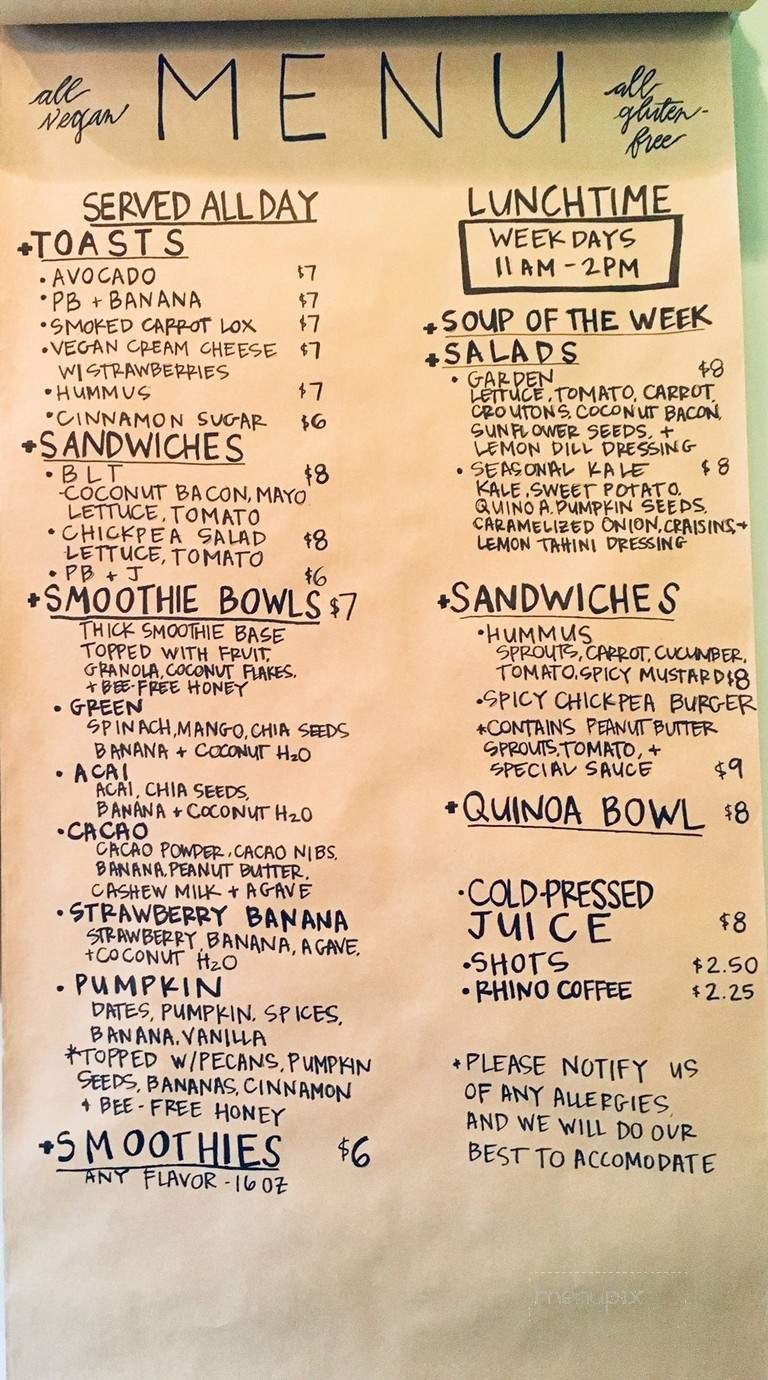 all vegan
MENU
all gluten-free
SERVED ALL DAY
+TOASTS
• AVOCADO $7
• PB + BANANA $7
• SMOKED CARROT LOX $7
• VEGAN CREAM CHEESE $7
W/STRAWBERRIES
• HUMMUS $7
• CINNAMON SUGAR $6
+SANDWICHES
• BLT $8
-COCONUT BACON, MAYO
LETTUCE, TOMATO
• CHICKPEA SALAD $8
LETTUCE, TOMATO
• PB + J $6
+SMOOTHIE BOWLS $7
THICK SMOOTHIE BASE
TOPPED WITH FRUIT,
GRANOLA, COCONUT FLAKES,
+ BEE-FREE HONEY
• GREEN
SPINACH, MANGO, CHIA SEEDS
BANANA + COCONUT H2O
• ACAI
ACAI, CHIA SEEDS,
BANANA + COCONUT H2O
• CACAO
CACAO POWDER, CACAO NIBS,
BANANA, PEANUT BUTTER,
CASHEW MILK + AGAVE
• STRAWBERRY BANANA
STRAWBERRY, BANANA, AGAVE,
+COCONUT H2O
• PUMPKIN
DATES, PUMPKIN, SPICES,
BANANA, VANILLA
*TOPPED W/PECANS, PUMPKIN
SEEDS, BANANAS, CINNAMON
+ BEE-FREE HONEY
+SMOOTHIES $6
ANY FLAVOR - 16 OZ
LUNCHTIME
WEEKDAYS
11 AM - 2 PM
+SOUP OF THE WEEK
+SALADS
• GARDEN $8
LETTUCE, TOMATO, CARROT,
CROUTONS, COCONUT BACON,
SUNFLOWER SEEDS, +
LEMON DILL DRESSING
• SEASONAL KALE $8
KALE, SWEET POTATO,
QUINOA, PUMPKIN SEEDS,
CARAMELIZED ONION, CRAISINS, +
LEMON TAHINI DRESSING
+SANDWICHES
• HUMMUS
SPROUTS, CARROT, CUCUMBER,
TOMATO, SPICY MUSTARD $8
• SPICY CHICKPEA BURGER
*CONTAINS PEANUT BUTTER
SPROUTS, TOMATO, +
SPECIAL SAUCE $9
+QUINOA BOWL $8
• COLD-PRESSED
JUICE $8
• SHOTS $2.50
• RHINO COFFEE $2.25
*PLEASE NOTIFY US
OF ANY ALLERGIES,
AND WE WILL DO OUR
BEST TO ACCOMODATE
menupix